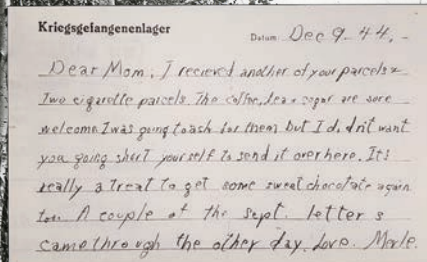 Kriegsgefangenenlager
Datum: Dec 9 - 44. -
Dear Mom; I recieved another of your parcels &
Two cigarette parcels The coffee, tea & sugar are sure
welcome. I was going to ask for them but I didn't want
you going short yourself to send it over here. Its
really a treat to get some sweet chocolate again
too. A couple of the Sept. letters
came through the other day. Love. Merle.